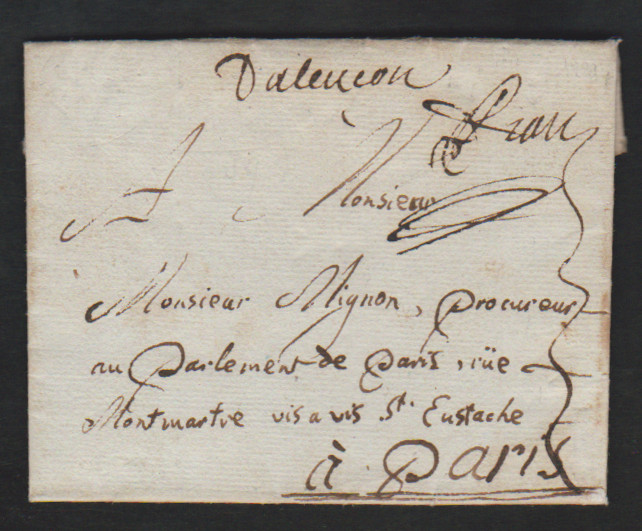 Dalencon
franc
A Monsieur
Monsieur Mignon, Procureur
au Parlement de Paris, rüe
Montmartre vis a vis St. Eustache
à Paris